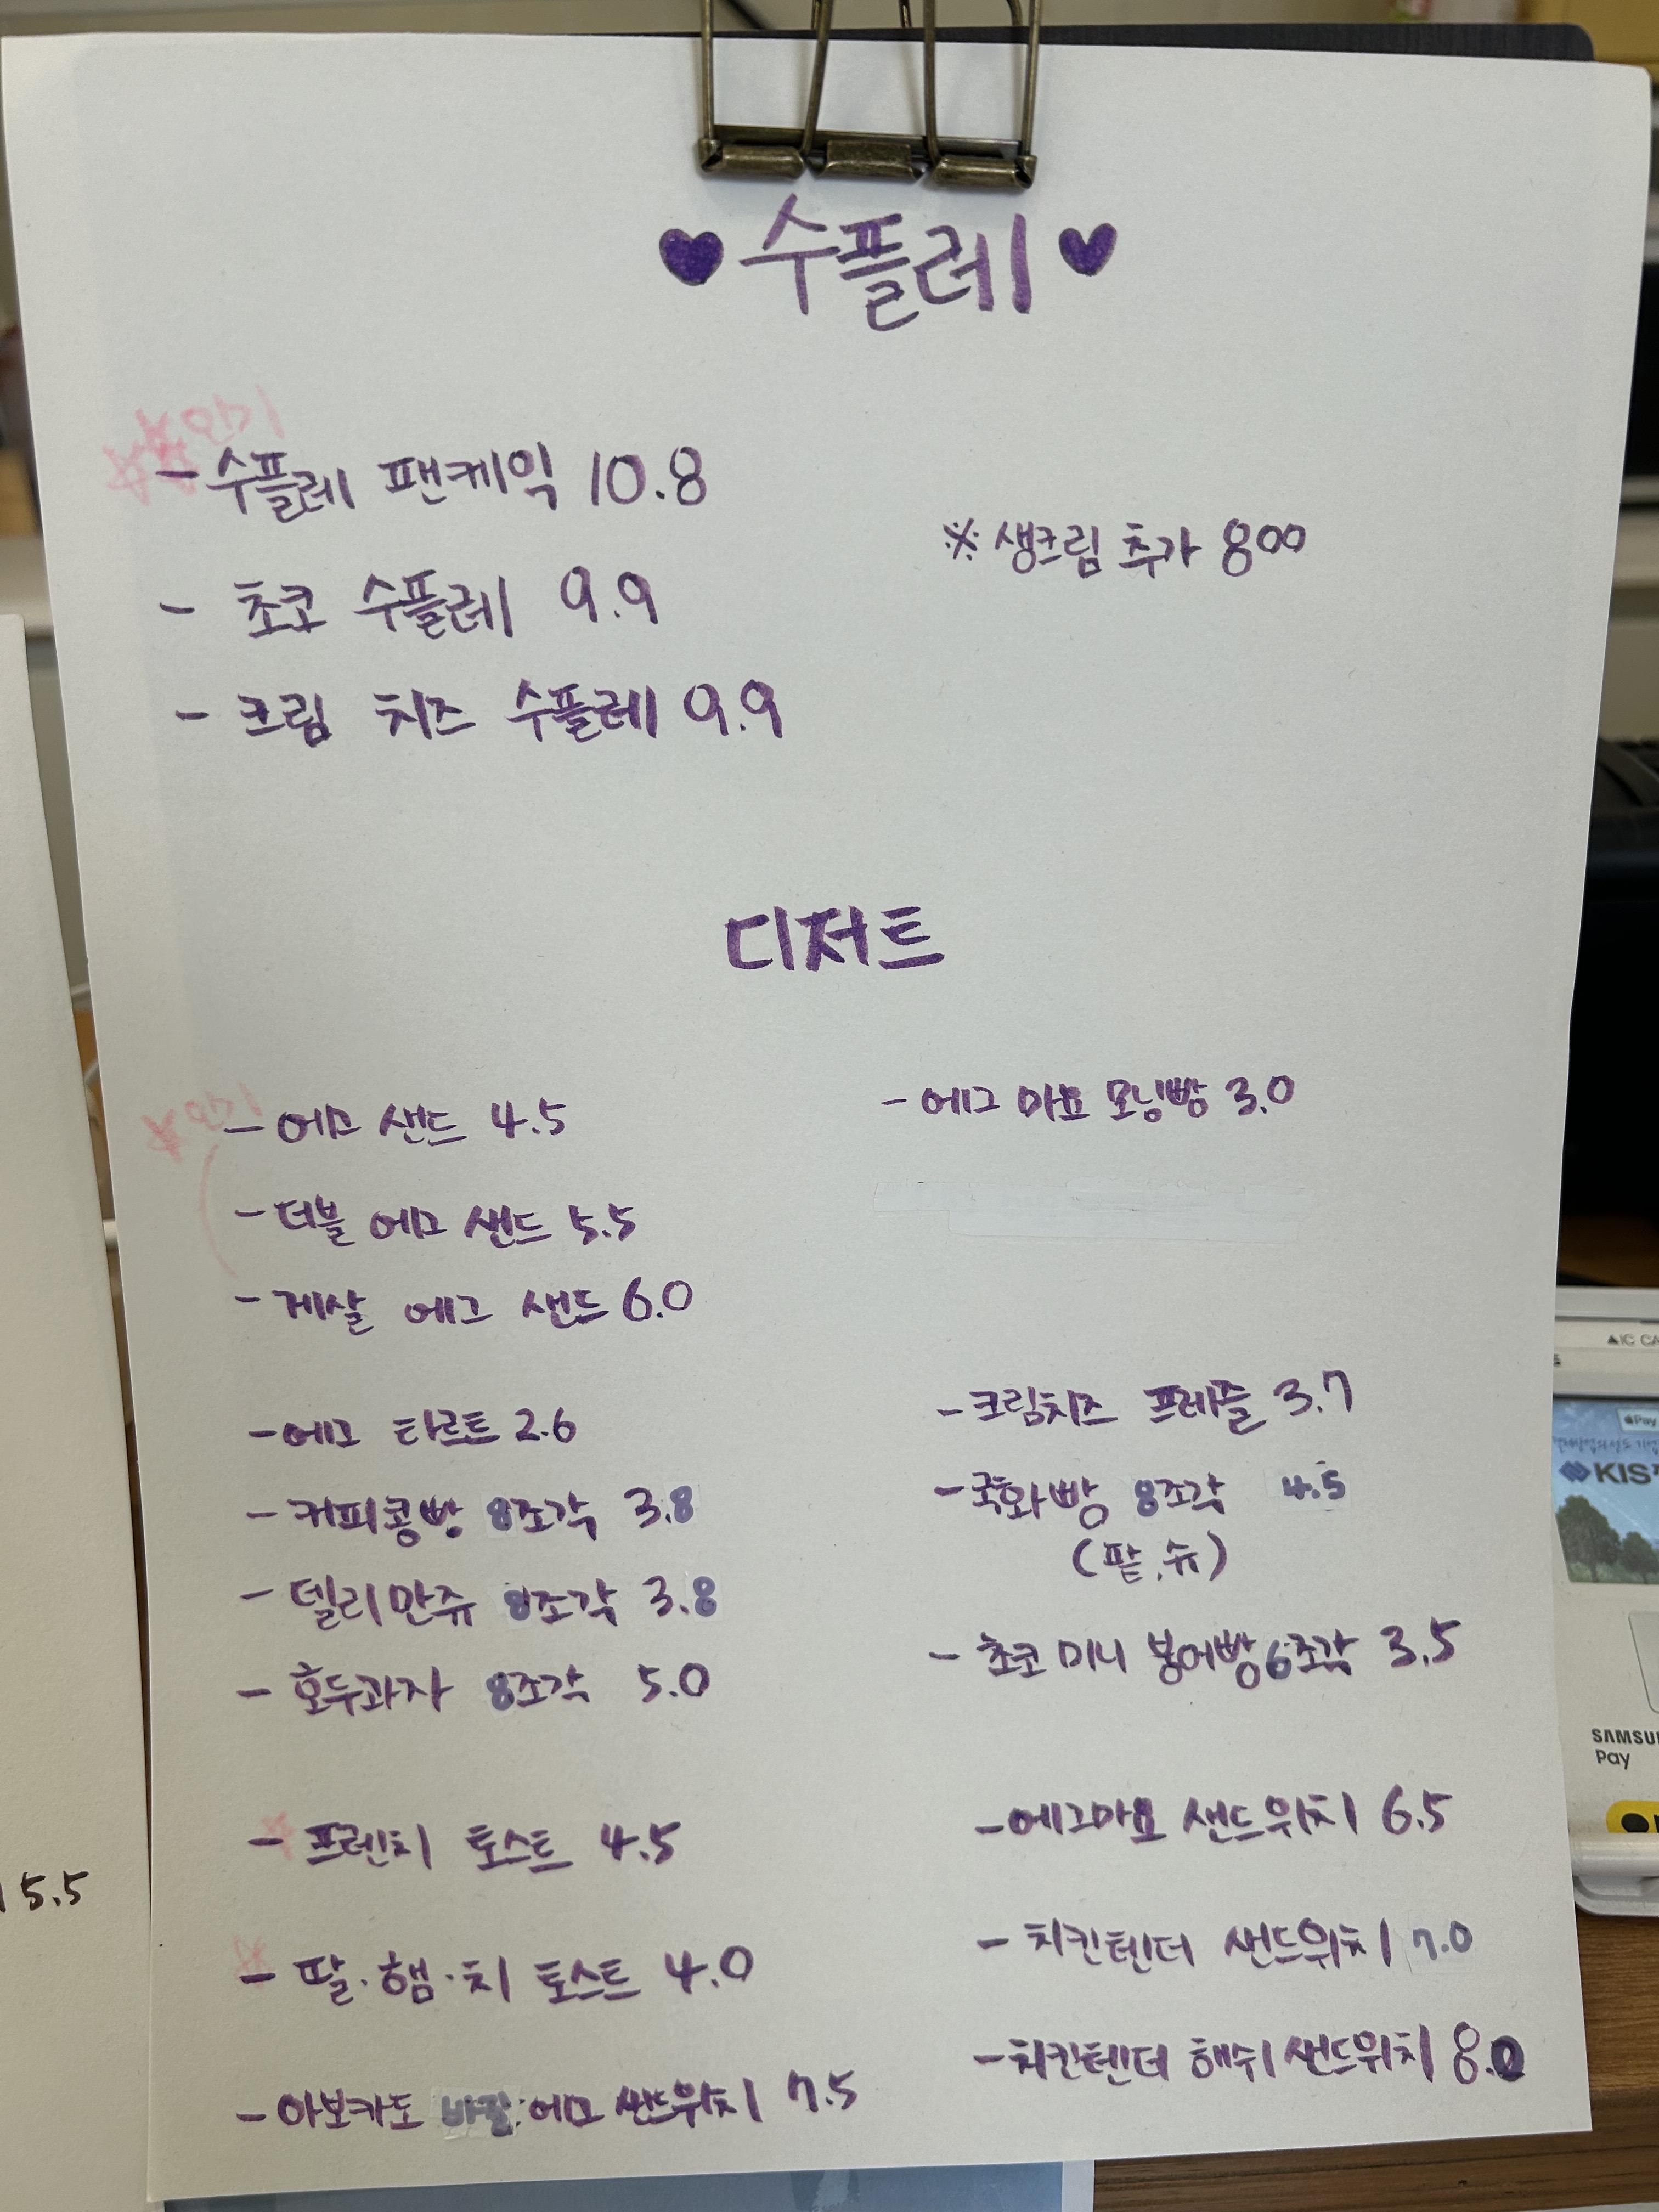 ♥수플레♥
인기
- 수플레 팬케익 10.8
※ 생크림 추가 800
- 초코 수플레 9.9
- 크림 치즈 수플레 9.9
디저트
인기
- 에그 샌드 4.5
- 더블 에그 샌드 5.5
- 게살 에그 샌드 6.0
- 에그 타르트 2.6
- 커피콩빵 8조각 3.8
- 델리만쥬 8조각 3.8
- 호두과자 8조각 5.0
- 프렌치 토스트 4.5
- 딸·햄·치 토스트 4.0
- 아보카도 에그 샌드위치 7.5
- 에그 마요 모닝빵 3.0
- 크림치즈 프레즐 3.7
- 국화빵 8조각 4.5
(팥, 슈)
- 초코 미니 붕어빵 6조각 3.5
- 에그마요 샌드위치 6.5
- 치킨텐더 샌드위치 7.0
- 치킨텐더 해쉬 샌드위치 8.0
5.5
IC CA
Pay
KIS
SAMSU
Pay